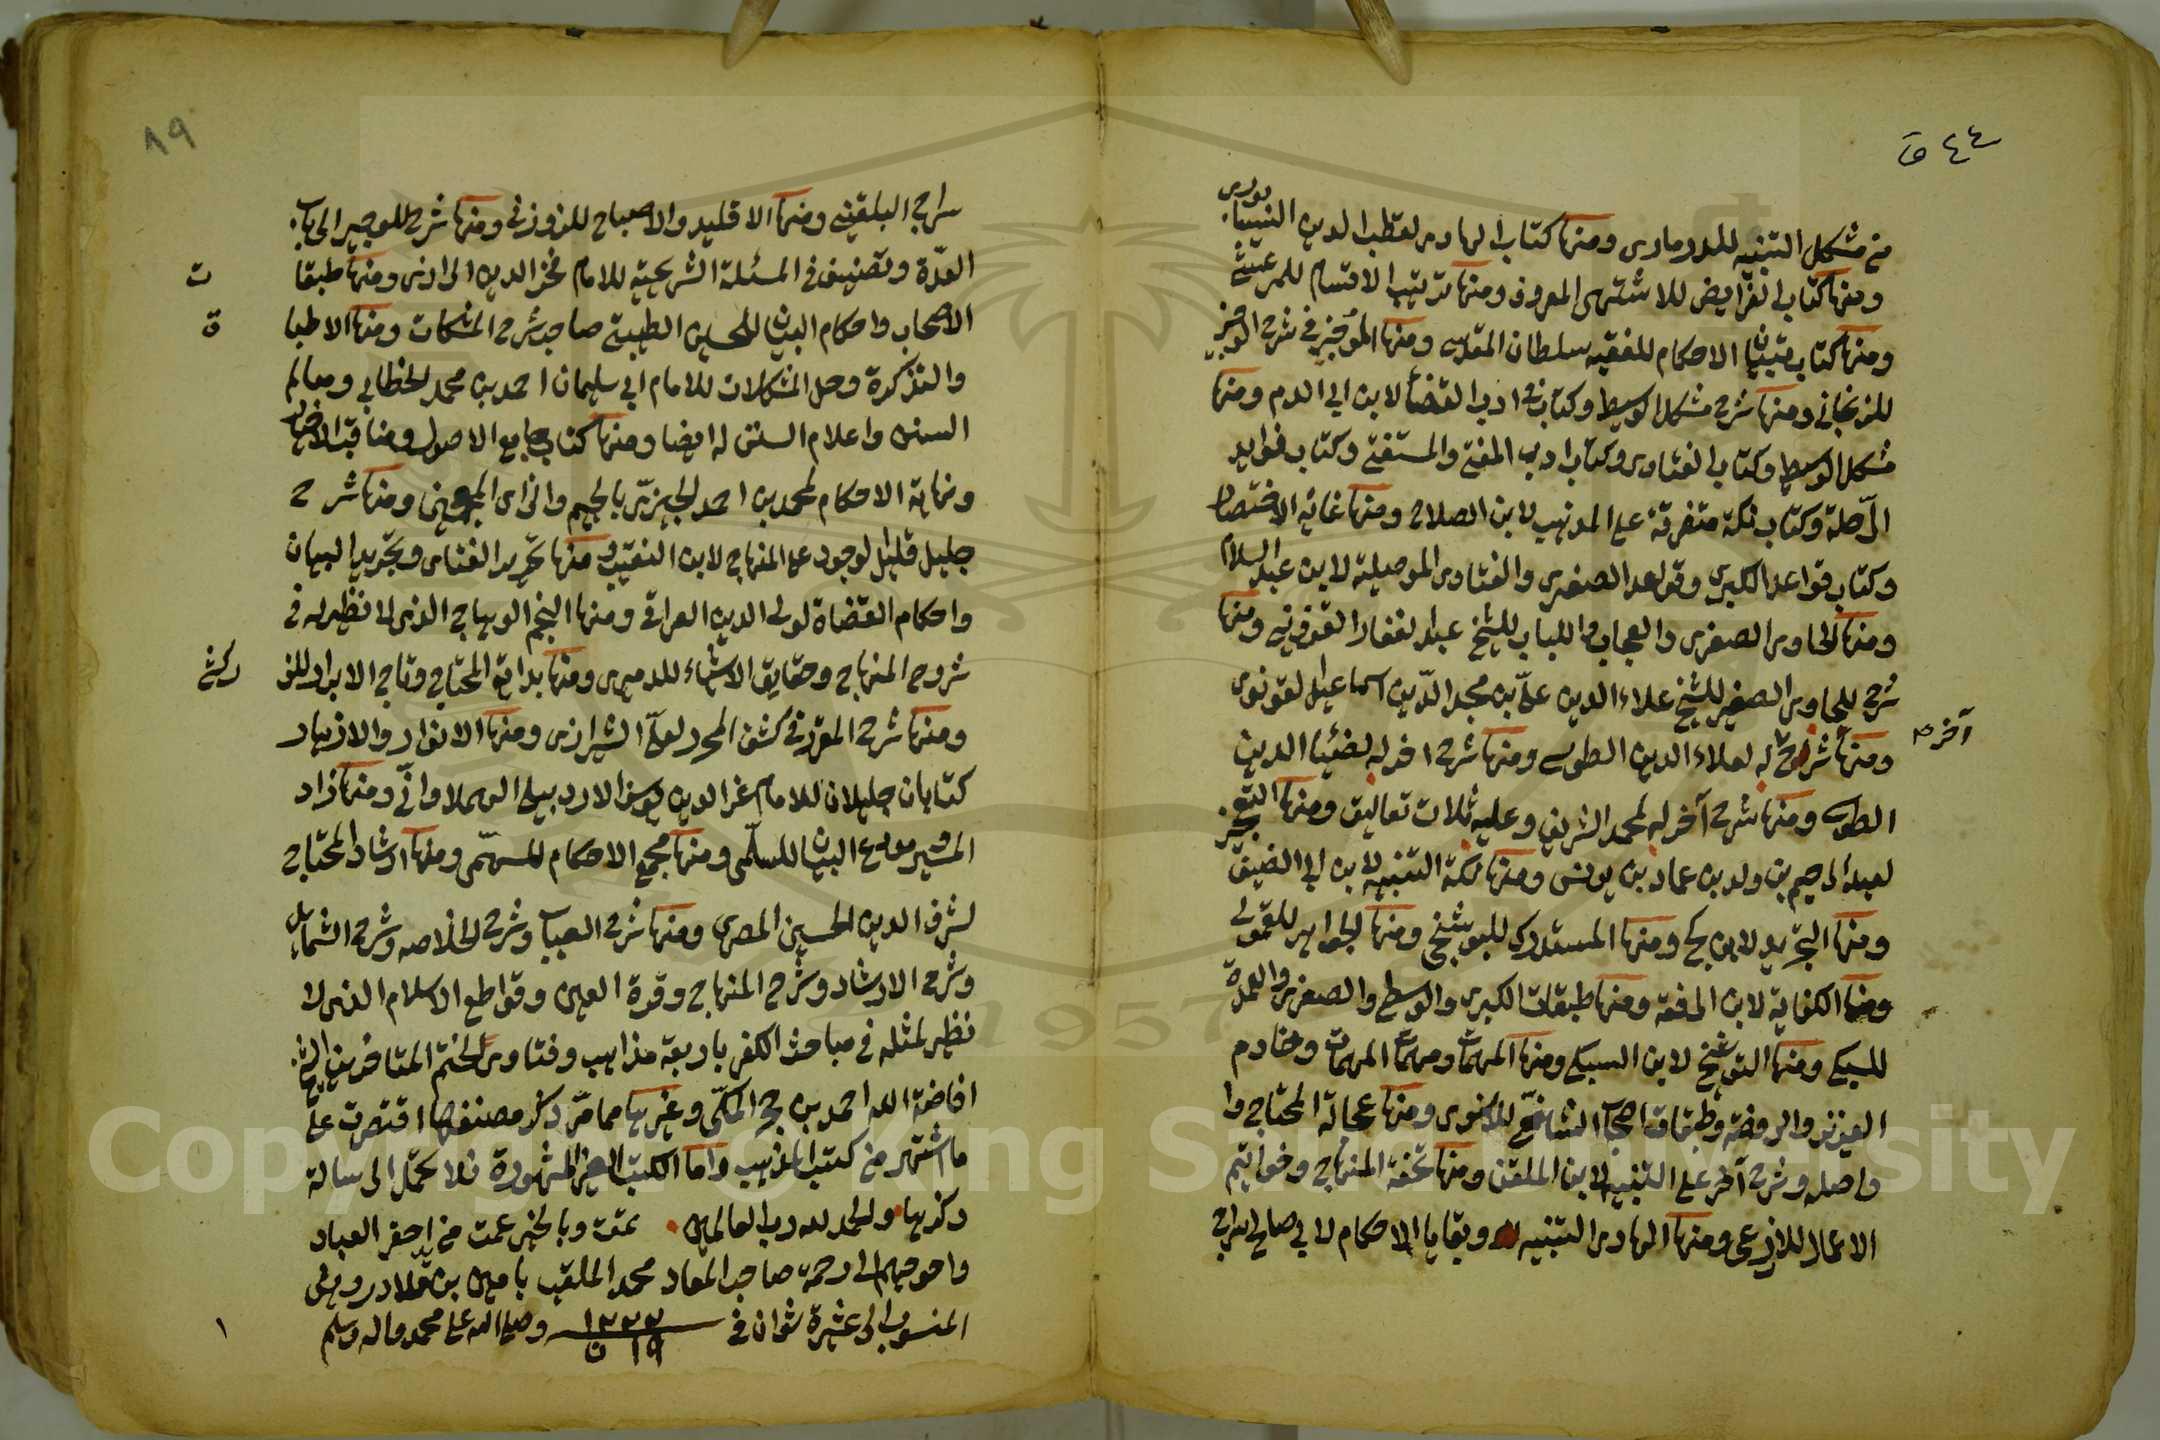 ٤٤ ق
من مشكل التنبيه للدزماري ومنها كتاب الهادي لقطب الدين النيسابوري
ومنها كتاب الفرايض للاشنهي المعروف ومنها ترتيب الاقسام للمرعشي
ومنها كتاب تبيان الاحكام للفقيه سلطان المقدسي ومنها الموجز في شرح الوجيز
للزنجاني ومنها شرح مشكل الوسيط وكتاب في ادب القضا لابن ابي الدم ومنها
مشكل الوسيط وكتاب الفتاوى وكتاب ادب المفتي والمستفتي وكتاب فوايد
الرحلة وكتاب نكت متفرقة على المذهب لابن الصلاح ومنها غاية الاختصار
وكتاب قواعد الكبرى وقواعد الصغرى والفتاوى الموصلية لابن عبد السلام
ومنها الحاوي الصغرى والعجاب واللباب للشيخ عبد الغفار القزويني ومنها
شرح للحاوي الصغير للشيخ علاء الدين علي بن مجد الدين اسماعيل القونوي
ومنها شرح له لعلاء الدين الطوسي ومنها شرح اخر له لضياء الدين
آخر صح
الطوسي ومنها شرح آخر له لمحمد الشريف وعليه ثلاث تعاليق ومنها التعجيز
لعبد الرحيم بن ولد بن عماد بن يونس ومنها نكت التنبيه لابن ابي الضيف
ومنها التجريد لابن كج ومنها المستدرك للبوشنجي ومنها الجواهر للقمولي
ومنها الكفاية لابن الرفعة ومنها طبقات الكبرى والوسطى والصغرى والعمدة
للسبكي ومنها التوشيح لابن السبكي ومنها المهمات ومهمات المهمات وخادم
العزيز والروضة وطبقات اصحاب الشافعي للاسنوي ومنها عجالة المحتاج وا
واصله وشرح آخر على التنبيه لابن الملقن ومنها تحفة المنهاج وخواتيم
الاعمال للاذرعي ومنها الهادي التنبيه وبقايا الاحكام لابي صالح سراج
٨٩
سراج البلقيني ومنها الاقليد والاصباح للزوزني ومنها شرح للوجيز الى باب
العدّة وتصنيف في المسئلة الشريحية للامام فخر الدين الرازي ومنها طبقا
ت
الاصحاب واحكام البيان للحسين الطيبي صاحب شرح المشكات ومنها الاطبا
ق
والتذكرة وحل المشكلات للامام ابي سليمان احمد بن محمد الخطابي ومعالم
السنن واعلام السنن له ايضا ومنها كتاب جامع الاصول ومناقب الاخيار
ونهاية الاحكام لمحمد بن احمد الجيزي بالجيم والزاي المعجمين ومنها شرح
جليل قليل لوجود على المنهاج لابن النقيب ومنها تحرير الفتاوى وتجريد البيان
واحكام القضاة لولي الدين العراقي ومنها النجم الوهاج الذي لا نظير له في
شروح المنهاج وحقايق الاشياء للدميري ومنها بداية المحتاج وتاج الابرار للز
ركشي
ومنها شرح المقرر في كشف المحرر لعلي الشيرازي ومنها الانوار والازهار
كتابان جليلان للامام عز الدين يوسف الاردبيلي السملاواني ومنها زاد
المسير مع البيان للسلمي ومنها مجمع الاحكام للسهمي ومنها ارشاد المحتاج
لشرف الدين الحسين المصري ومنها شرح العباب وشرح الخلاصه وشرح الشمايل
وشرح الارشاد وشرح المنهاج وقرة العين وقواطع الاسلام الذي لا
نظير لمثله في مباحث الكفر باربعة مذاهب وفتاوى لختم المتاخرين الشيخ
افاضة الله احمد بن حجر المكي وغيرها مما مر ذكر مصنفها اقتصرت على
ما اشتهر من كتب المذهب واما الكتب الغير المشهورة فلا تحمل الرسالة
ذكرها والحمد لله رب العالمين تمت وبالخير عمت من يد احقر العباد
واحوجهم الى رحمة صاحب المعاد محمد الملقب بامين بن ملا درويش
المنسوب الى عشيرة شوان في ١٢٢٢ ١٩ ن وصلى الله على محمد واله وسلم
١
Copyright © King Saud University
1957